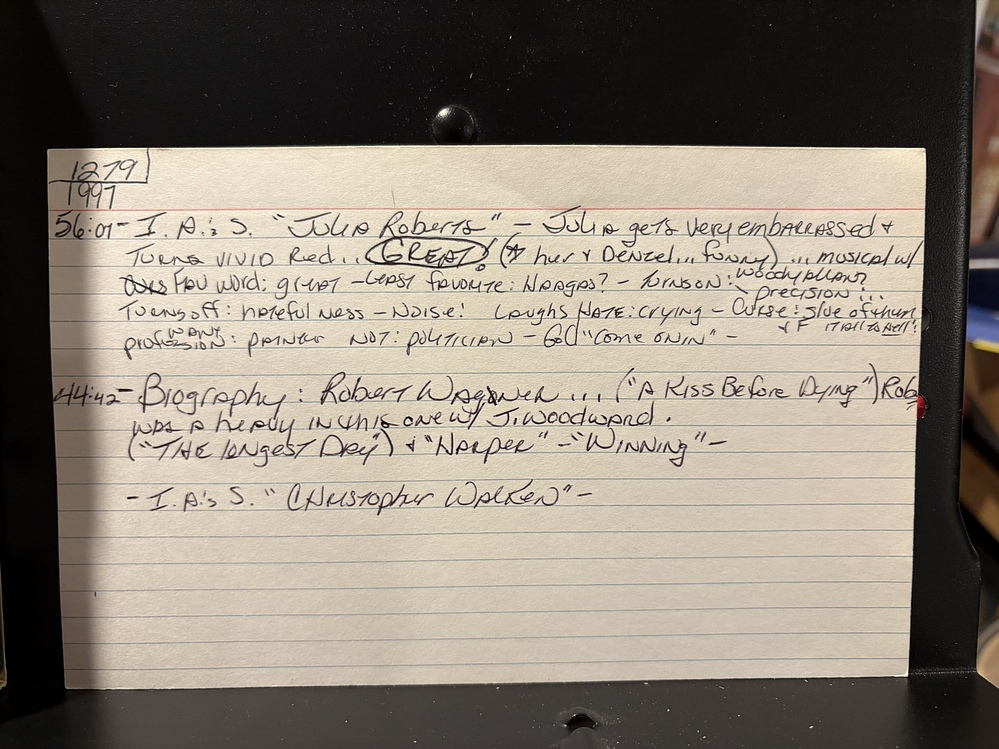 1279
1997
56:01- I. A.'s S. "Julia Roberts" - Julia gets very embarrassed &
Turns vivid Red... GREAT! (* her & Denzel... funny) ... musical w/
Woody Allen?
Fav word: great - Least favorite: - Turnson: precision...
Turns off: hatefulness - Noise! Laughs Hate: crying - Curse: slue of them
& F it all to hell!
want
profession: painter NOT: politician - God "come on in" -
44:42 - Biography: Robert Wagoner... ("A Kiss Before Dying") Rob
was a heavy in this one w/ J. Woodward.
("THE longest Day") & "Harper" - "Winning" -
- I. A.'s S. "Christopher Walken" -